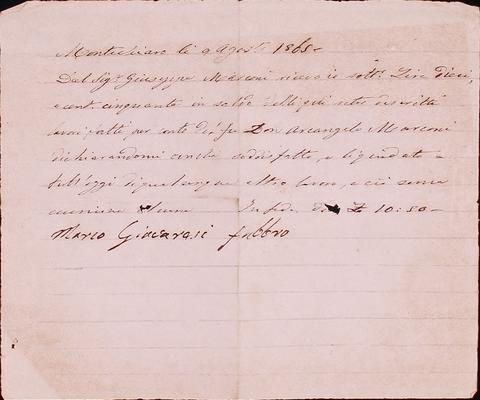 Montechiaro li 9 Agosto 1865-
Dal Sig.r Giuseppe Marconi ricevo io sott.o Lire dieci,
e cent. cinquanta in saldo delli qui retro descritti
lavori fatti per conto del fu Don Arcangelo Marconi
dichiarandomi anche soddisfatto, e liquidato a
tutt'oggi di qualunque altro lavoro, e ciò senza
eccezione alcuna In fede di £ 10:50-
Marco Giavarasi fabbro